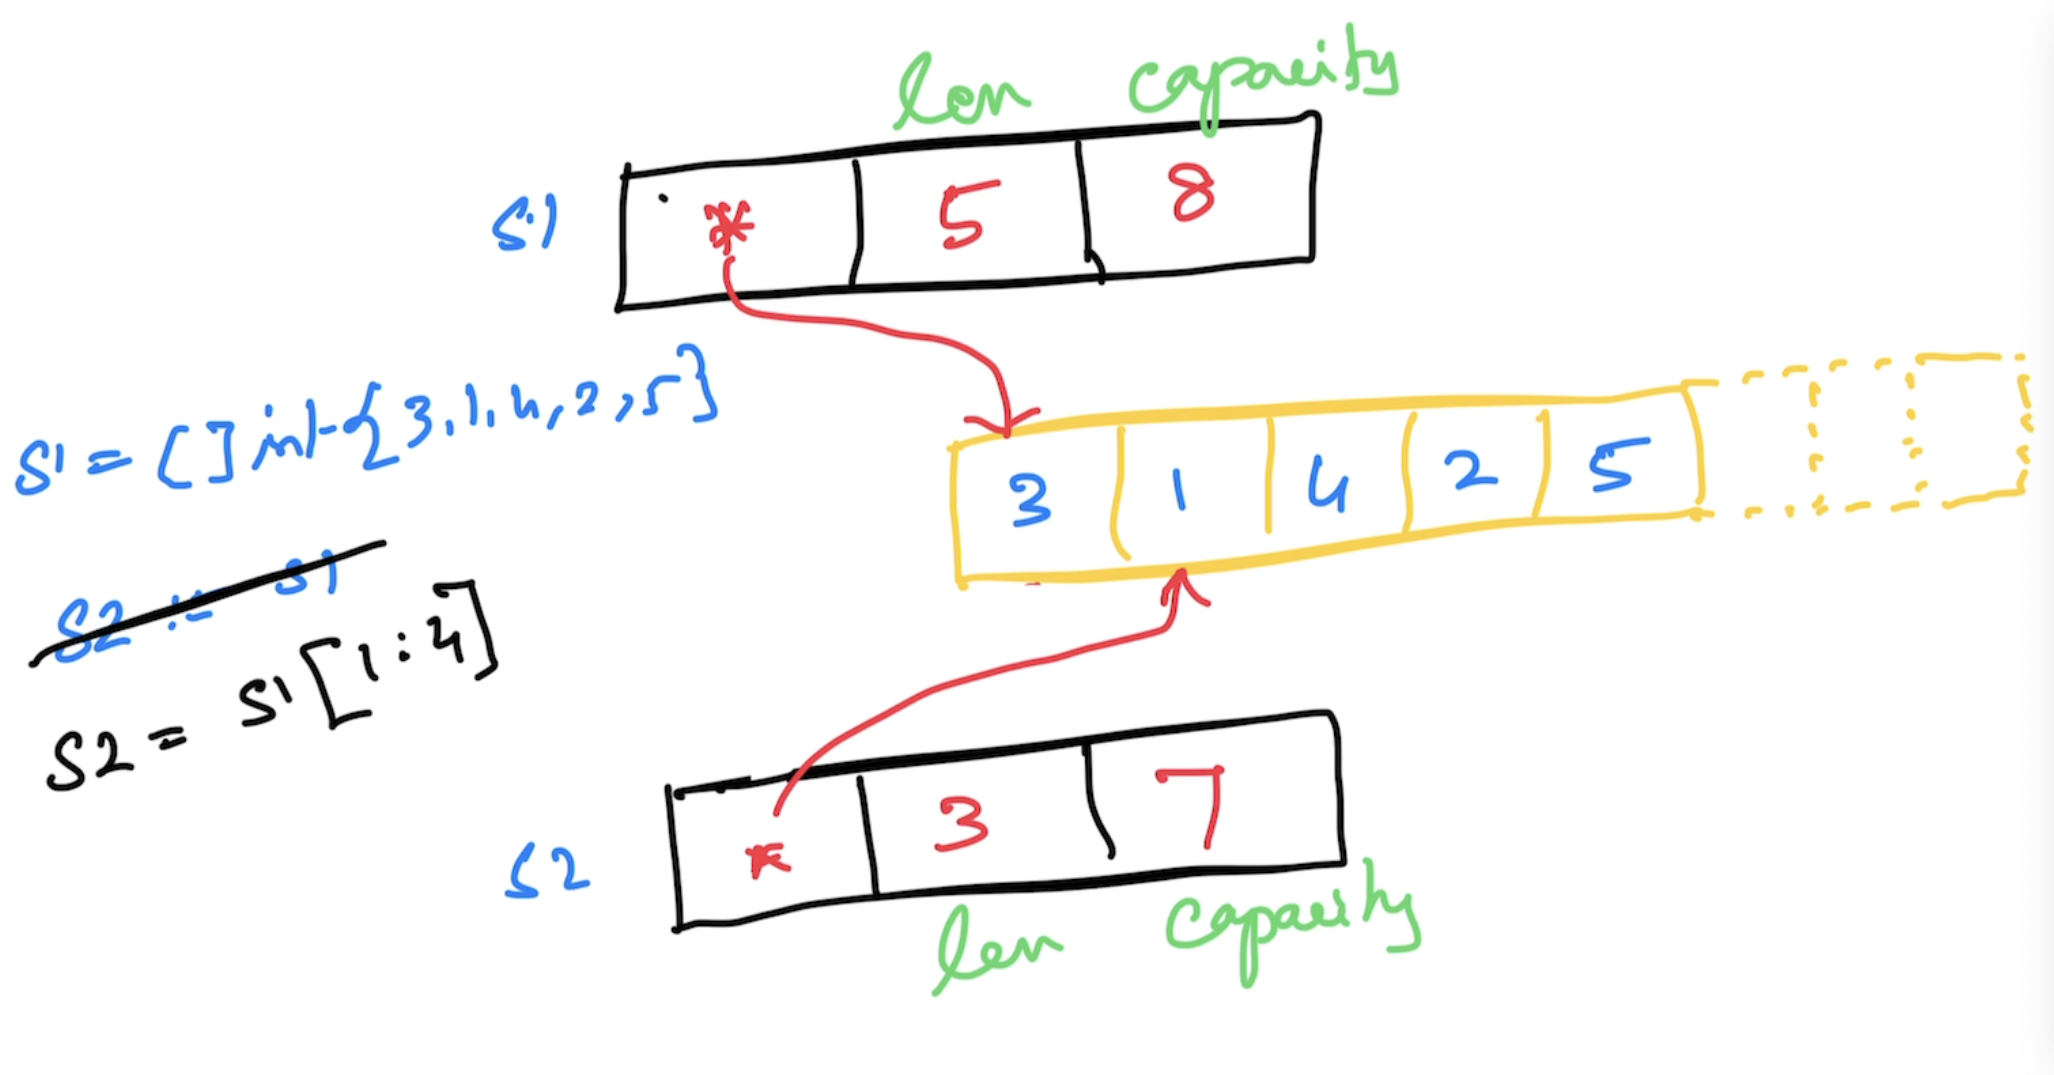 len capacity
S1 * 5 8
S1 = []int{3,1,4,2,5}
3 1 4 2 5
S2 := S1
S2 = S1[1:4]
S2 * 3 7
len capacity